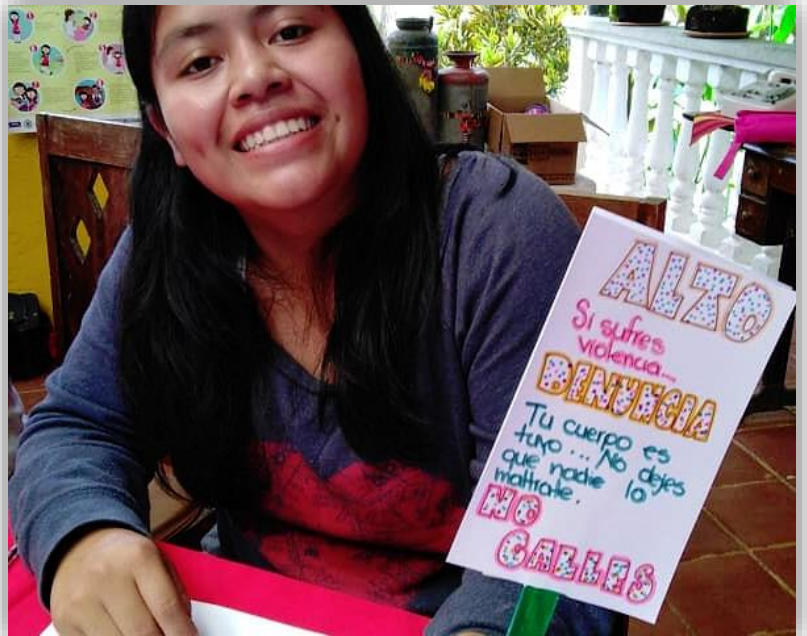 ALTO
Si sufres
violencia...
DENUNCIA
Tu cuerpo es
tuyo... No dejes
que nadie lo
maltrate.
NO
CALLES